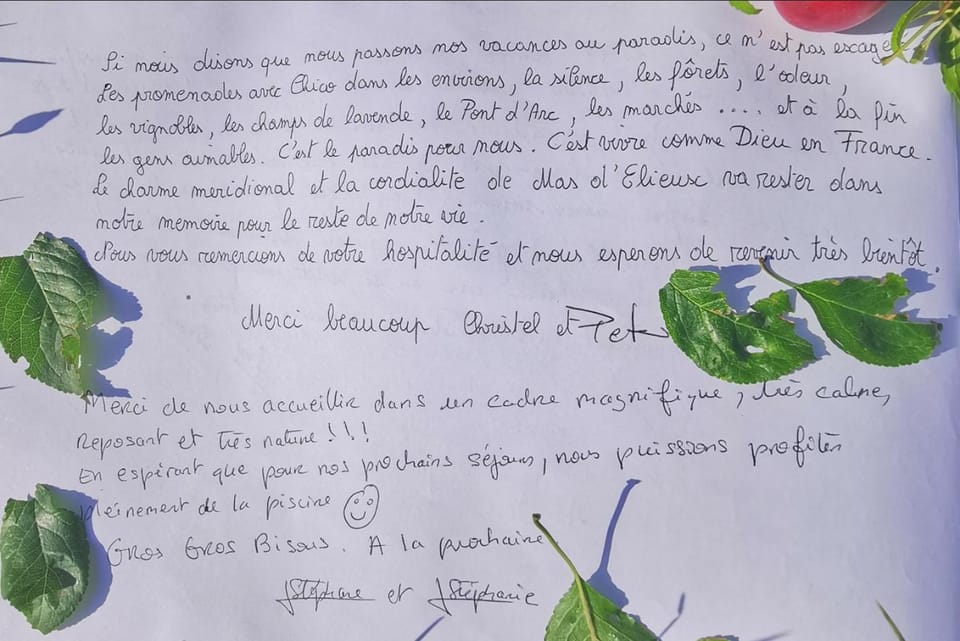 Si nous disons que nous passons nos vacances au paradis, ce n'est pas exagé
Les promenades avec Chico dans les environs, la silence, les fôrets, l'odeur,
les vignobles, les champs de lavende, le Pont d'Arc, les marchés .... et à la fin
les gens aimables. C'est le paradis pour nous. C'est vivre comme Dieu en France.
Le charme meridional et la cordialité de Mas d'Elieusc va rester dans
notre memoire pour le reste de notre vie.
Nous vous remercions de votre hospitalité et nous esperons de revenir très bientôt.
Merci beaucoup Christel et Pet
Merci de nous accueillir dans un cadre magnifique, très calme,
reposant et très nature !!!
En espérant que pour nos prochains séjours, nous puissions profiter
pleinement de la piscine
Gros Gros Bisous. A la prochaine
Stéphane et Stéphanie